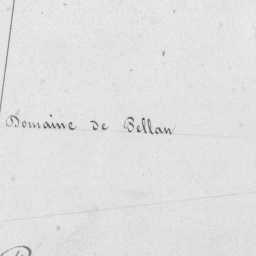 Domaine de Bellan